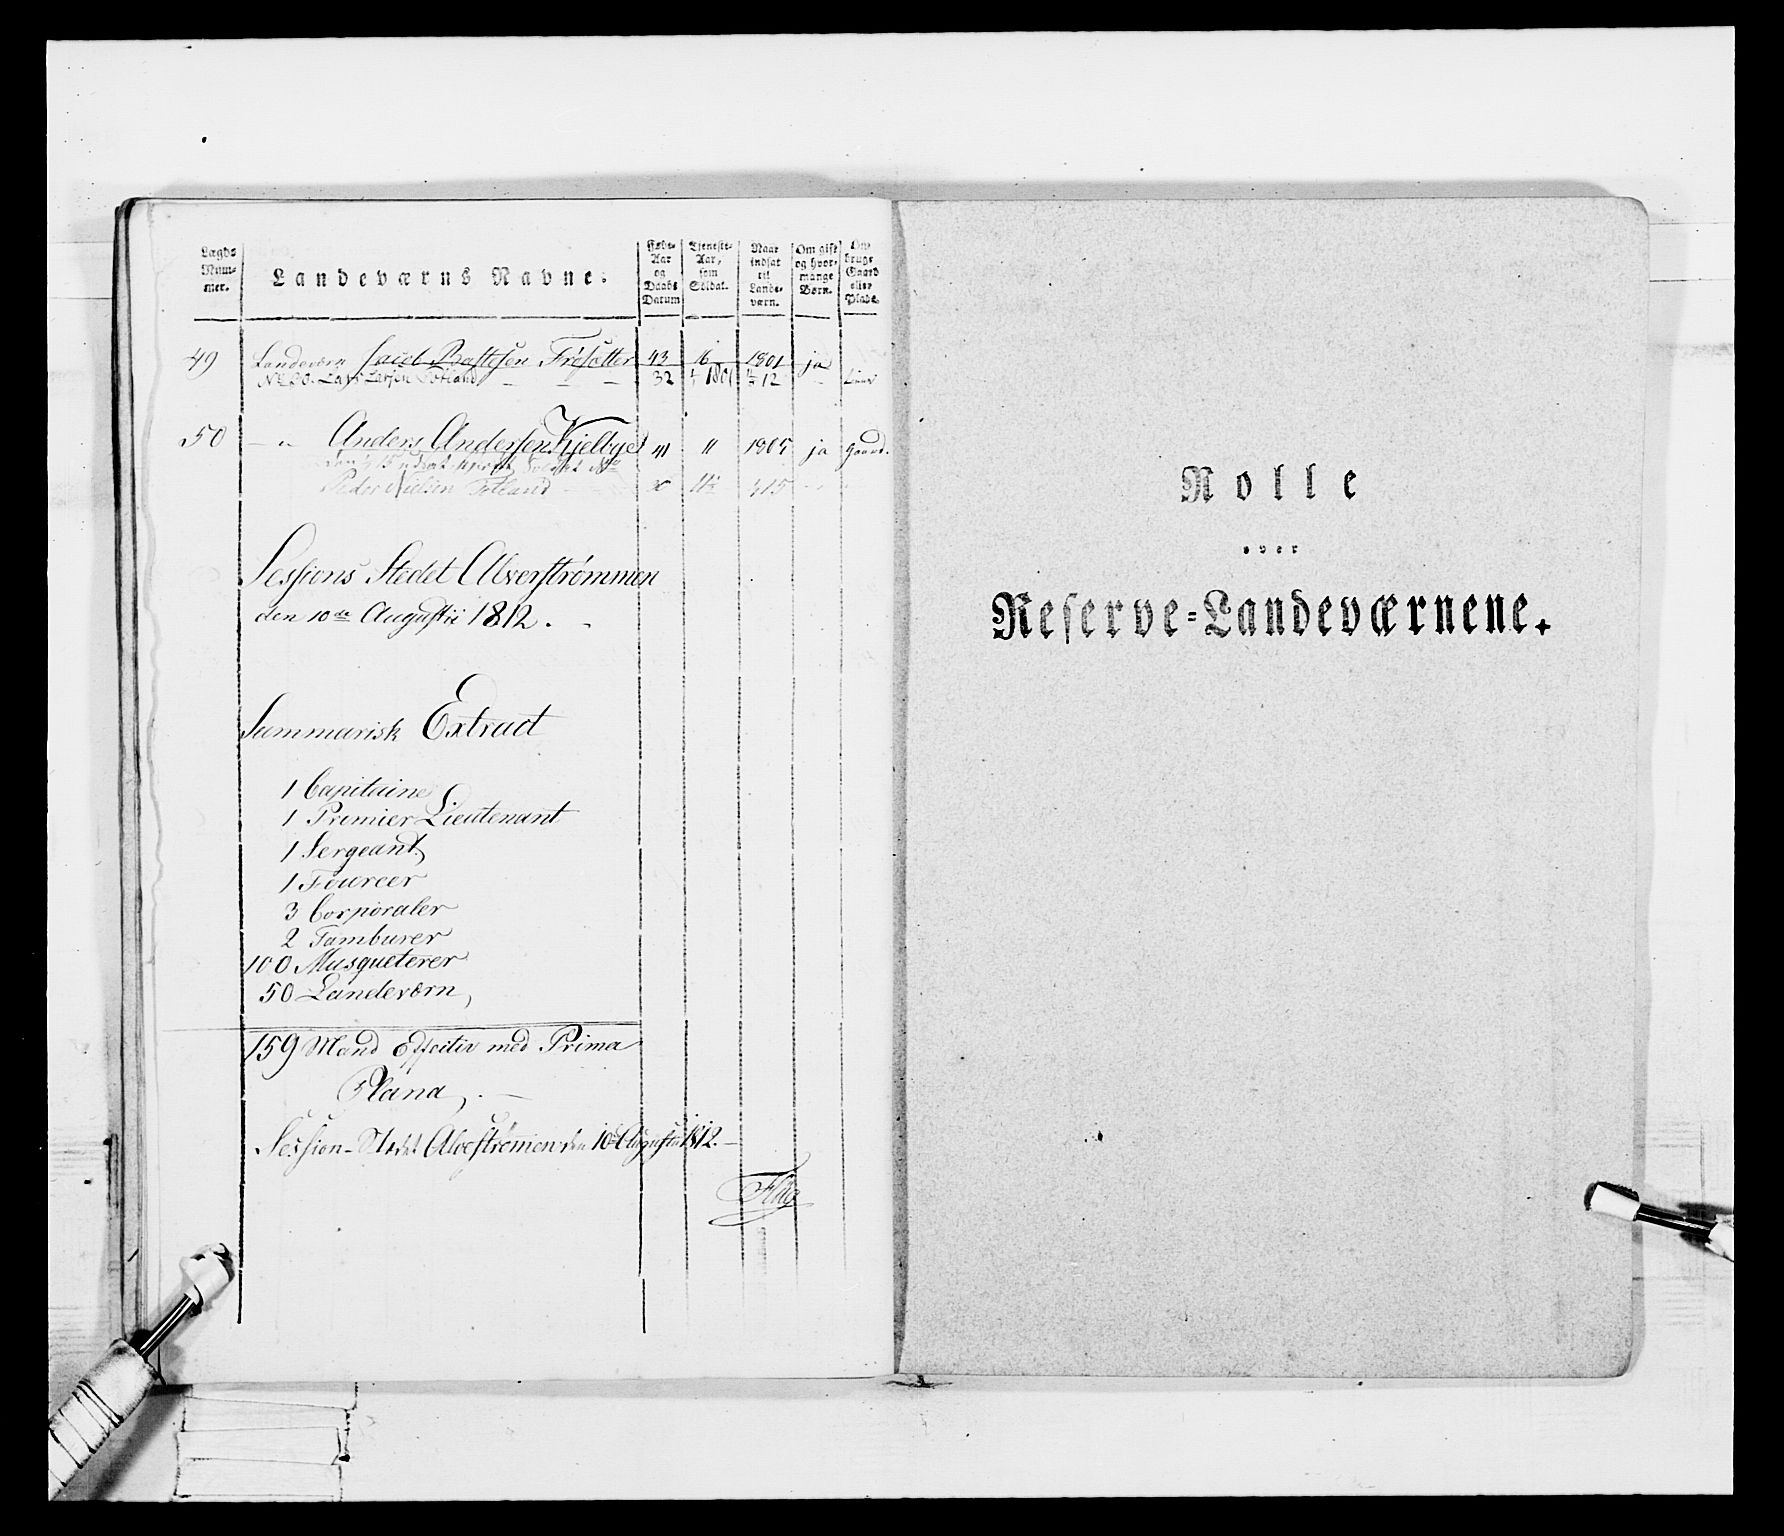 Lægds Num- mer.
Landeværns Navne.
Føde- Aar og Daabs Datum
Tjeneste- Aar, som Soldat.
Naar indsat til Lande- værn.
Om gift og hvor- mange Børn.
Om bruge Gaard eller Plads.
49 Landeværn Jacob Bastesen Frøsætter 43 16 1801 ja
No 20. Lars Larsen 32 1801 12
50 - „ Anders Andersen Kjelbye 41 " 1805 ja Gaard.
Peder Nielsen Fotland
Sessions Stedet Alverstrømmen
den 10de Augustii 1812.
Summarisk Extract
1 Capitaine
1 Premier Lieutenant
1 Sergeant
1 Foureer
3 Corporaler
2 Tamburer
100 Musqueterer
50 Landeværn,
159 Mand Effectiv med Prima
Plana,
Session-Stedet Alvestrømmen den 10de Augustii 1812.
Rolle
over
Reserve-Landeværnene.